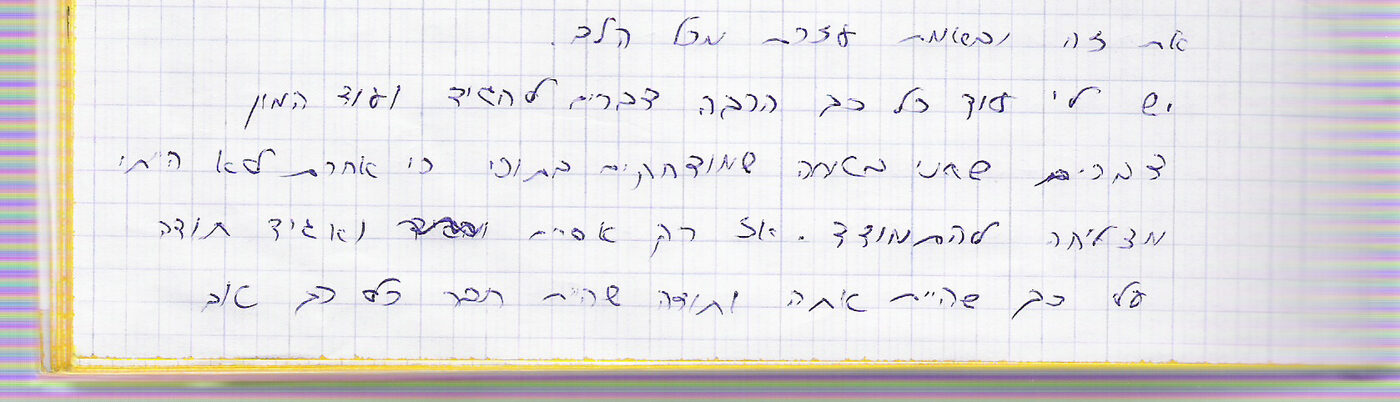 את זה ובאמת עזרת מכל הלב.
יש לי עוד כל כך הרבה דברים להגיד ועוד המון
דברים שאני בטוחה שמודחקים בתוכי כי אחרת לא הייתי
מצליחה להתמודד. אז רק אסיים ואגיד תודה
על כך שהיית אתה ותודה שהיית חבר כל כך טוב